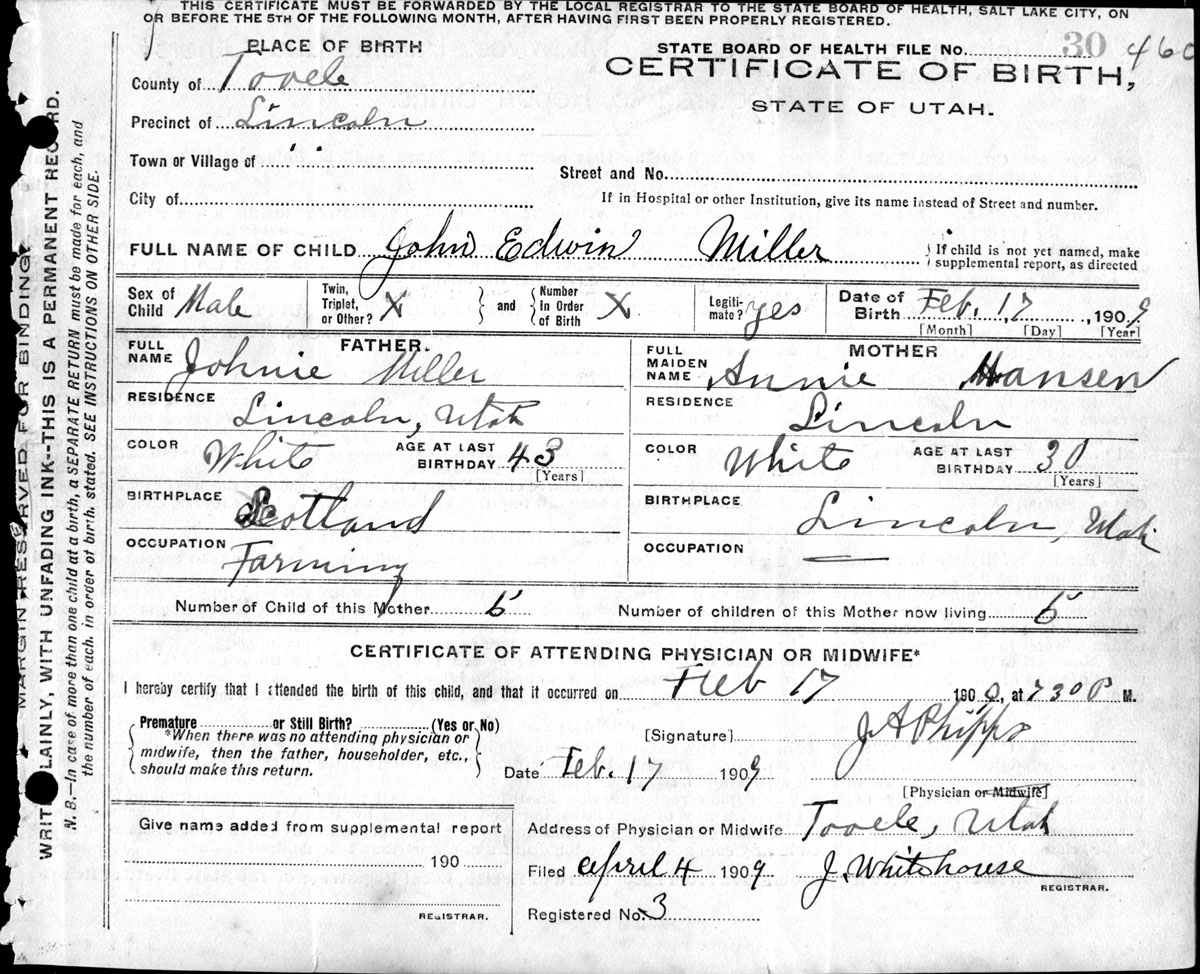 THIS CERTIFICATE MUST BE FORWARDED BY THE LOCAL REGISTRAR TO THE STATE BOARD OF HEALTH, SALT LAKE CITY, ON
OR BEFORE THE 5TH OF THE FOLLOWING MONTH, AFTER HAVING FIRST BEEN PROPERLY REGISTERED.
PLACE OF BIRTH
STATE BOARD OF HEALTH FILE No. 30 460
County of Tooele
CERTIFICATE OF BIRTH,
STATE OF UTAH.
Precinct of Lincoln
Town or Village of " "
Street and No.
City of
If in Hospital or other Institution, give its name instead of Street and number.
FULL NAME OF CHILD John Edwin Miller
If child is not yet named, make
supplemental report, as directed
Sex of Child Male
Twin, Triplet, or Other? X
and
Number in Order of Birth X
Legitimate? yes
Date of Birth Feb. 17, 1909
[Month] [Day] [Year]
FATHER.
FULL NAME Johnie Miller
MOTHER
FULL MAIDEN NAME Annie Hansen
RESIDENCE Lincoln, Utah
RESIDENCE Lincoln
COLOR White AGE AT LAST BIRTHDAY 43 [Years]
COLOR White AGE AT LAST BIRTHDAY 30 [Years]
BIRTHPLACE Scotland
BIRTHPLACE Lincoln, Utah
OCCUPATION Farming
OCCUPATION —
Number of Child of this Mother 5
Number of children of this Mother now living 5
CERTIFICATE OF ATTENDING PHYSICIAN OR MIDWIFE*
I hereby certify that I attended the birth of this child, and that it occurred on Feb 17 1909, at 730 P M.
Premature or Still Birth? (Yes or No)
*When there was no attending physician or
midwife, then the father, householder, etc.,
should make this return.
[Signature] J A Phipps
Date Feb. 17 1909
[Physician or Midwife]
Give name added from supplemental report
190
REGISTRAR.
Address of Physician or Midwife Tooele, Utah
Filed April 4 1909 J. Whitehouse
REGISTRAR.
Registered No. 3
MARGIN RESERVED FOR BINDING
WRITE PLAINLY, WITH UNFADING INK--THIS IS A PERMANENT RECORD.
N. B.—In case of more than one child at a birth, a SEPARATE RETURN must be made for each, and
the number of each, in order of birth, stated. SEE INSTRUCTIONS ON OTHER SIDE.